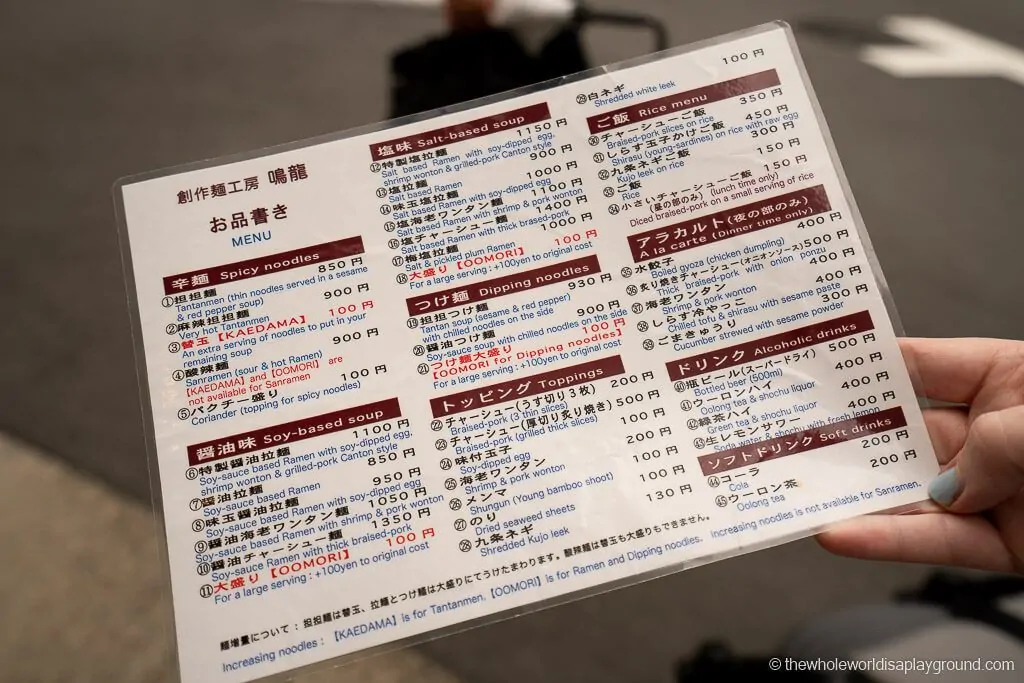 創作麺工房 鳴龍
お品書き
MENU
辛麺 Spicy noodles
①担担麺 850 円
Tantanmen (thin noodles served in a sesame
& red pepper soup)
②麻辣担担麺 900 円
Very hot Tantanmen
③替玉【KAEDAMA】 100 円
An extra serving of noodles to put in your
remaining soup
④酸辣麺 900 円
Sanramen (sour & hot Ramen)
【KAEDAMA】 and 【OOMORI】 are
not available for Sanramen
⑤パクチー盛り 100 円
Coriander (topping for spicy noodles)
醤油味 Soy-based soup
⑥特製醤油拉麺 1100 円
Soy-sauce based Ramen with soy-dipped egg,
shrimp wonton & grilled-pork Canton style
⑦醤油拉麺 850 円
Soy-sauce based Ramen
⑧味玉醤油拉麺 950 円
Soy-sauce based Ramen with soy-dipped egg
⑨醤油海老ワンタン麺 1050 円
Soy-sauce based Ramen with shrimp & pork wonton
⑩醤油チャーシュー麺 1350 円
Soy-sauce Ramen with thick braised-pork
⑪大盛り【OOMORI】 100 円
For a large serving : +100yen to original cost
塩味 Salt-based soup
⑫特製塩拉麺 1150 円
Salt based Ramen with soy-dipped egg,
shrimp wonton & grilled-pork Canton style
⑬塩拉麺 900 円
Salt based Ramen
⑭味玉塩拉麺 1000 円
Salt based Ramen with soy-dipped egg
⑮塩海老ワンタン麺 1100 円
Salt based Ramen with shrimp & pork wonton
⑯塩チャーシュー麺 1400 円
Salt based Ramen with thick brased-pork
⑰梅塩拉麺 1000 円
Salt & pickled plum Ramen
⑱大盛り【OOMORI】 100 円
For a large serving : +100yen to original cost
つけ麺 Dipping noodles
⑲担担つけ麺 930 円
Tantan soup (sesame & red pepper)
with chilled noodles on the side
⑳醤油つけ麺 900 円
Soy-sauce soup with chilled noodles on the side
㉑つけ麺大盛り 100 円
【OOMORI for Dipping noodles】
For a large serving : +100yen to original cost
トッピング Toppings
㉒チャーシュー(うす切り3枚) 200 円
Braised-pork (3 thin slices)
㉓チャーシュー(厚切り炙り焼き) 500 円
Braised-pork (grilled thick slices)
㉔味付玉子 100 円
Soy-dipped egg
㉕海老ワンタン 200 円
Shrimp & pork wonton
㉖メンマ 100 円
Shungun (Young bamboo shoot)
㉗のり 100 円
Dried seaweed sheets
㉘九条ネギ 130 円
Shredded Kujo leek
㉙白ネギ 100 円
Shredded white leek
ご飯 Rice menu
㉚チャーシューご飯 350 円
Braised-pork slices on rice
㉛しらす玉子かけご飯 450 円
Shirasu (young-sardines) on rice with raw egg
㉜九条ネギご飯 300 円
Kujo leek on rice
㉝ご飯 150 円
Rice
㉞小さいチャーシューご飯 150 円
(昼の部のみ) (lunch time only)
Diced braised-pork on a small serving of rice
アラカルト(夜の部のみ)
A la carte (Dinner time only)
㉟水餃子 400 円
Boiled gyoza (chicken dumpling)
㊱炙り焼きチャーシュー(オニオンソース) 500 円
Thick braised-pork with onion ponzu
㊲海老ワンタン 400 円
Shrimp & pork wonton
㊳しらす冷やっこ 400 円
Chilled tofu & shirasu with sesame paste
㊴ごまきゅうり 300 円
Cucumber strewed with sesame powder
ドリンク Alcoholic drinks
㊵瓶ビール(スーパードライ) 500 円
Bottled beer (500ml)
㊶ウーロンハイ 400 円
Oolong tea & shochu liquor
㊷緑茶ハイ 400 円
Green tea & shochu liquor
㊸生レモンサワー 400 円
Soda water & shochu with fresh lemon
ソフトドリンク Soft drinks
㊹コーラ 200 円
Cola
㊺ウーロン茶 200 円
Oolong tea
麺増量について : 担担麺は替玉、拉麺とつけ麺は大盛りにてうけたまわります。酸辣麺は替玉も大盛りもできません。
Increasing noodles : 【KAEDAMA】 is for Tantanmen, 【OOMORI】 is for Ramen and Dipping noodles. Increasing noodles is not available for Sanramen.
© thewholeworldisaplayground.com